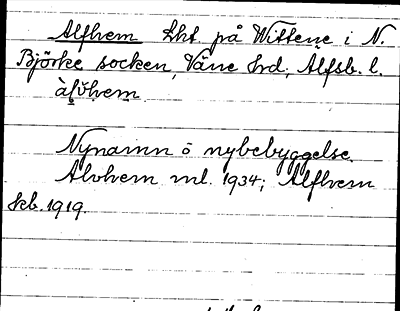 Alfhem Lht på Wittene i N.
Björke socken, Väne hrd, Älfsb. l.
àlvhem
Nynamn å nybebyggelse.
Alvhem ml. 1934; Alfhem
kb. 1919.